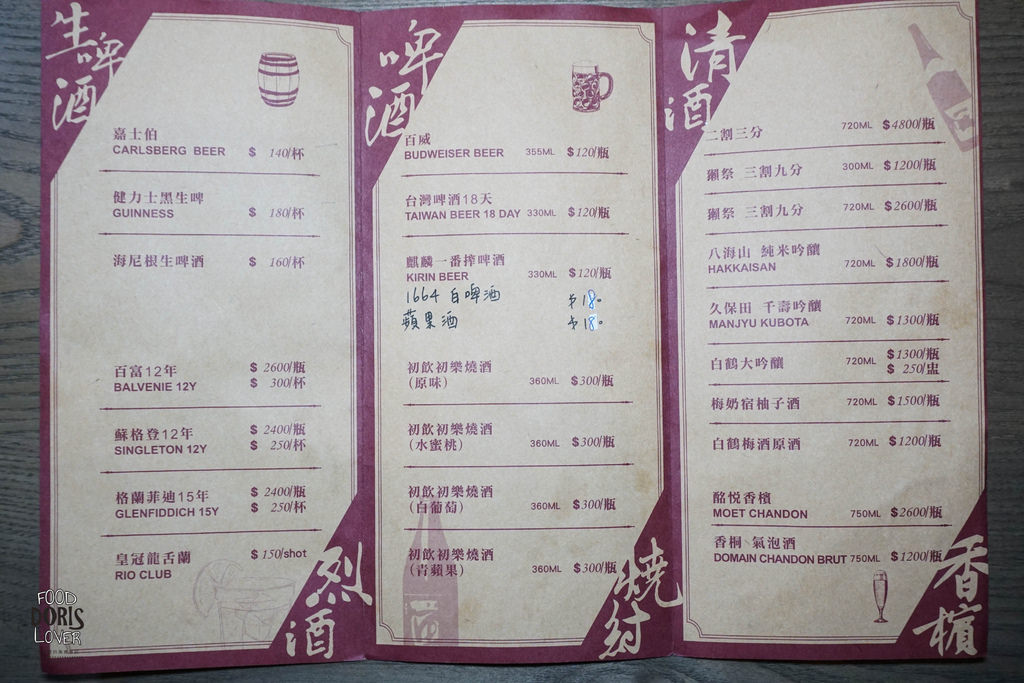 生啤酒
嘉士伯
CARLSBERG BEER $ 140/杯
健力士黑生啤
GUINNESS $ 180/杯
海尼根生啤酒 $ 160/杯
百富12年 $ 2600/瓶
BALVENIE 12Y $ 300/杯
蘇格登12年 $ 2400/瓶
SINGLETON 12Y $ 250/杯
格蘭菲迪15年 $ 2400/瓶
GLENFIDDICH 15Y $ 250/杯
皇冠龍舌蘭 $ 150/shot
RIO CLUB
烈酒
啤酒
百威
BUDWEISER BEER 355ML $120/瓶
台灣啤酒18天
TAIWAN BEER 18 DAY 330ML $120/瓶
麒麟一番搾啤酒
KIRIN BEER 330ML $120/瓶
1664 白啤酒 $180
蘋果酒 $180
初飲初樂燒酒
(原味) 360ML $300/瓶
初飲初樂燒酒
(水蜜桃) 360ML $300/瓶
初飲初樂燒酒
(白葡萄) 360ML $300/瓶
初飲初樂燒酒
(青蘋果) 360ML $300/瓶
燒酎
清酒
二割三分 720ML $4800/瓶
獺祭 三割九分 300ML $1200/瓶
獺祭 三割九分 720ML $2600/瓶
八海山 純米吟釀
HAKKAISAN 720ML $1800/瓶
久保田 千壽吟釀
MANJYU KUBOTA 720ML $1300/瓶
白鶴大吟釀 720ML $1300/瓶
$ 250/盅
梅奶宿柚子酒 720ML $1500/瓶
白鶴梅酒原酒 720ML $1200/瓶
酩悅香檳
MOET CHANDON 750ML $2600/瓶
香桐 氣泡酒
DOMAIN CHANDON BRUT 750ML $1200/瓶
香檳
FOOD
DORIS
LOVER